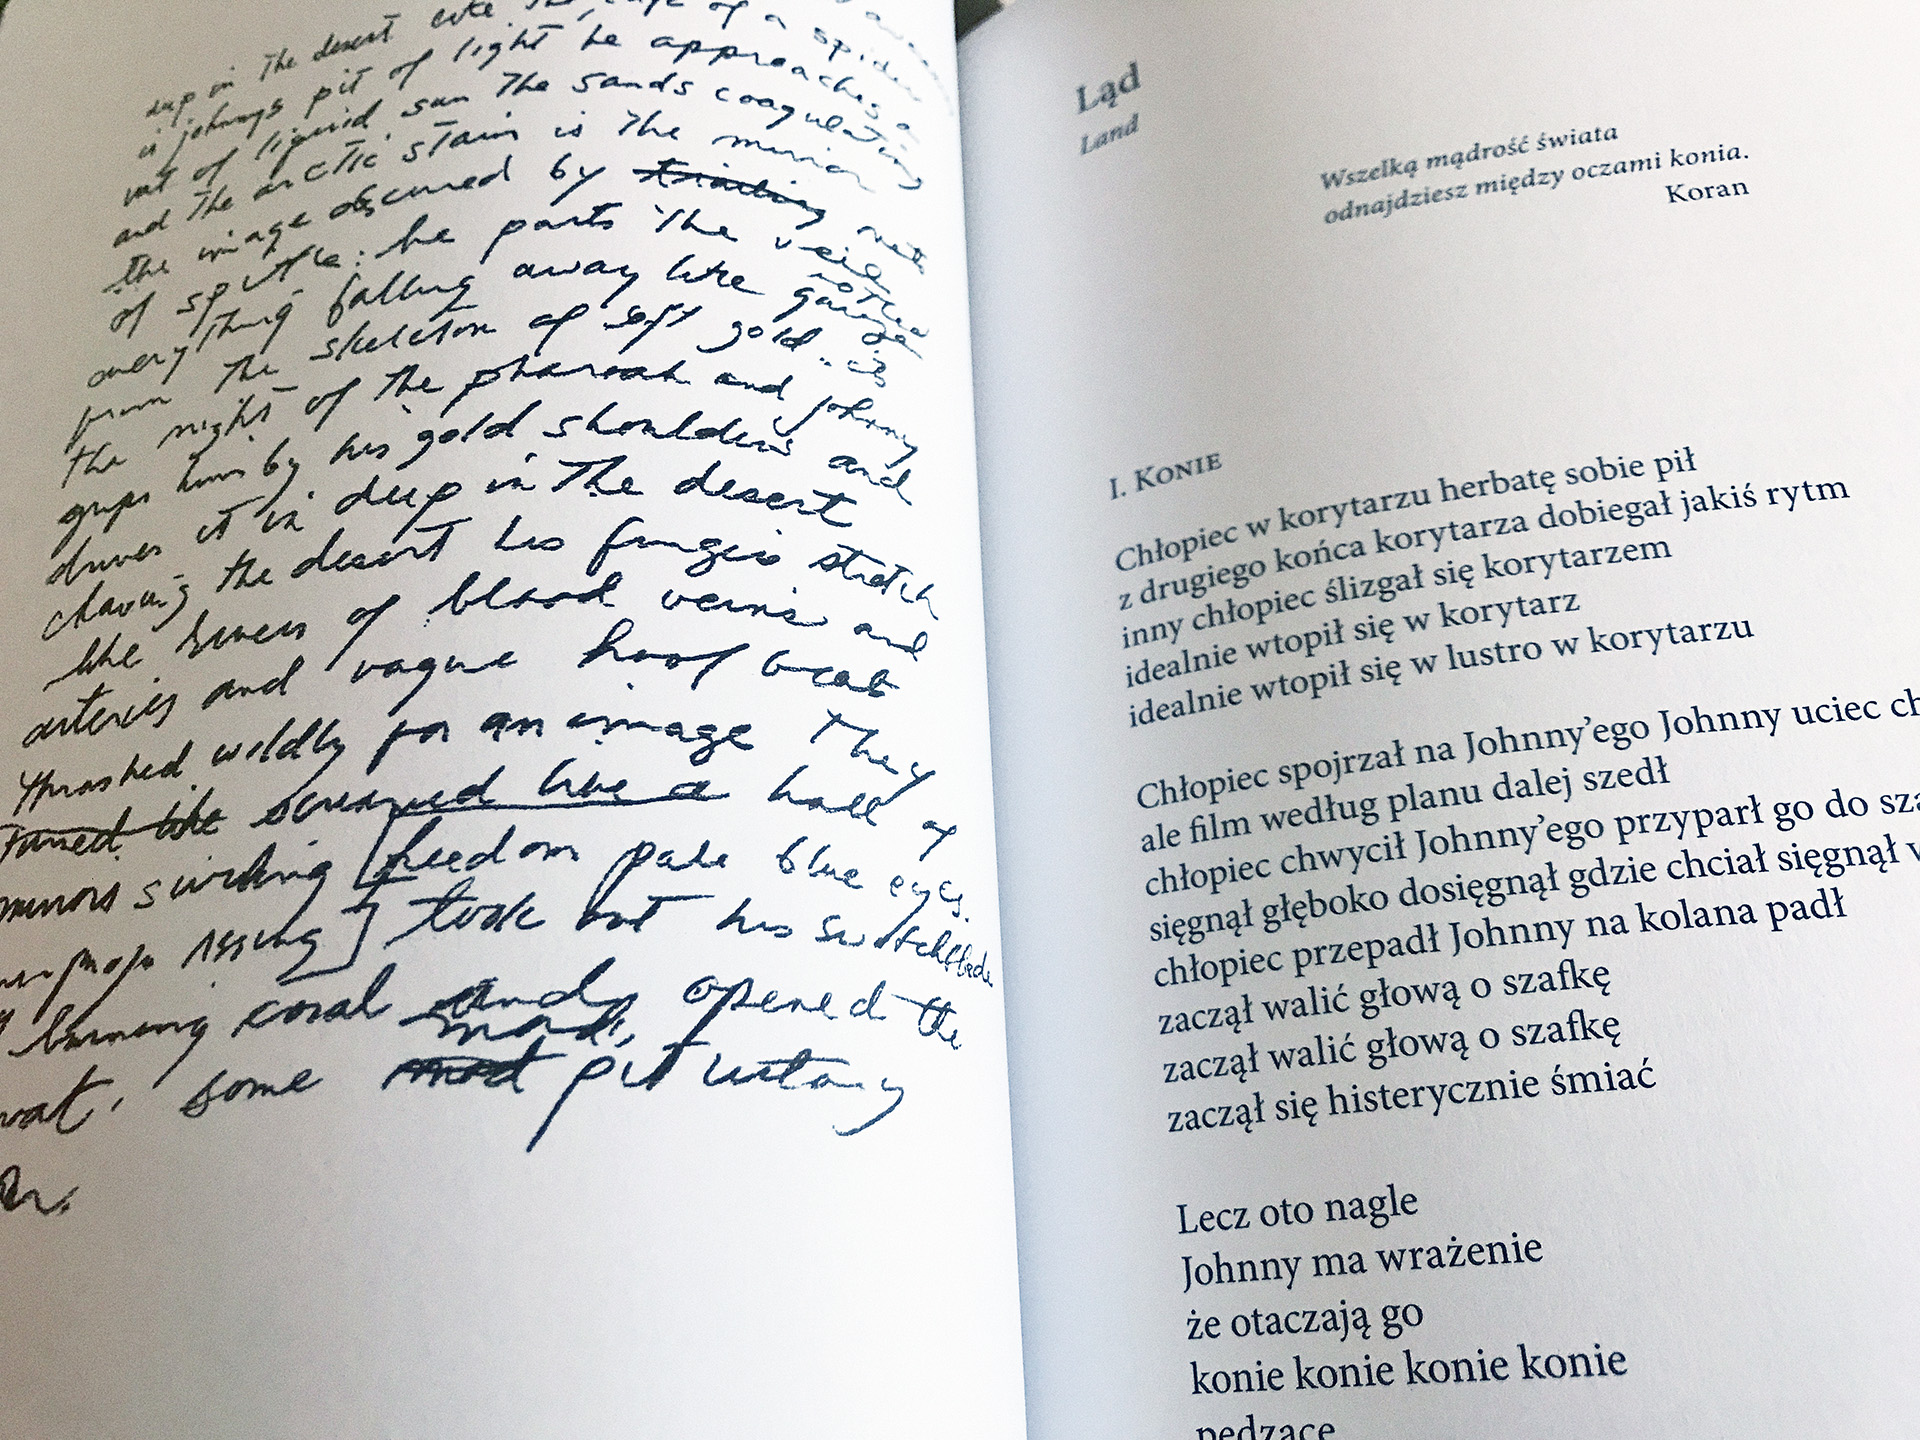 deep in the desert
is johnnys pit of light he approaches
out of liquid sun the sands coagulating
and the arctic stain is the mirror
the image obscured by
of spittle: he parts the veil
everything falling away like gauze
from the skeleton of soft gold..
the night of the pharoah and johnny
grips him by his gold shoulders and
drives it in deep in the desert
the desert his fingers stretch
like rivers of blood veins and
arteries and vague hoof beat
thrashed wildly for an image they
screamed like a hall of
mirrors swirling freedom pale blue eyes.
mojo rising] took out his switchblade
burning coral and opened the
some pit
Ląd
Land
Wszelką mądrość świata
odnajdziesz między oczami konia.
Koran
I. Konie
Chłopiec w korytarzu herbatę sobie pił
z drugiego końca korytarza dobiegał jakiś rytm
inny chłopiec ślizgał się korytarzem
idealnie wtopił się w korytarz
idealnie wtopił się w lustro w korytarzu
Chłopiec spojrzał na Johnny’ego Johnny uciec
ale film według planu dalej szedł
chłopiec chwycił Johnny’ego przyparł go do
sięgnął głęboko dosięgnął gdzie chciał sięgnął
chłopiec przepadł Johnny na kolana padł
zaczął walić głową o szafkę
zaczął walić głową o szafkę
zaczął się histerycznie śmiać
Lecz oto nagle
Johnny ma wrażenie
że otaczają go
konie konie konie konie
pędzące